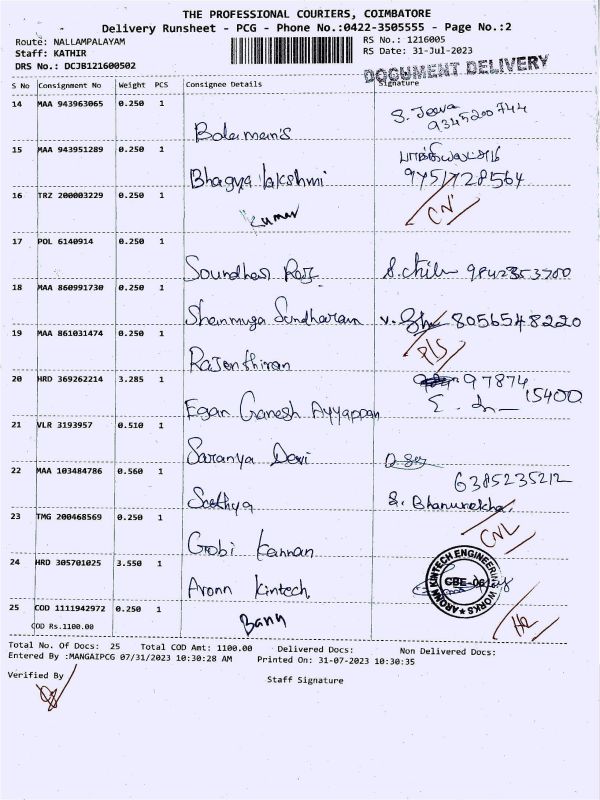 THE PROFESSIONAL COURIERS, COIMBATORE
Delivery Runsheet - PCG - Phone No.:0422-3505555 - Page No.:2
Route: NALLAMPALAYAM RS No.: 1216005
Staff: KATHIR RS Date: 31-Jul-2023
DRS No.: DCJB121600502
DOCUMENT DELIVERY
S No Consignment No Weight PCS Consignee Details Signature
14 MAA 943963065 0.250 1
S. Jeeva
9345200744
15 MAA 943951289 0.250 1
Bhagya lakshmi 9751728564
16 TRZ 200003229 0.250 1
Kumar
17 POL 6140914 0.250 1
Soundhar Raj 9842353700
18 MAA 860991730 0.250 1
Shanmuga Sundharam 8056548220
19 MAA 861031474 0.250 1
Rajenthiran
20 HRD 369262214 3.285 1
97874
15400
Egan Ganesh Ayyappan
21 VLR 3193957 0.510 1
Saranya Devi
22 MAA 103484786 0.560 1
6385235212
Sathya
23 TMG 200468569 0.250 1
Gobi Kannan
24 HRD 305701025 3.550 1
Aronn Kintech
ARONN KINTECH ENGINEERING WORKS
25 COD 1111942972 0.250 1
COD Rs.1100.00
Total No. Of Docs: 25 Total COD Amt: 1100.00 Delivered Docs: Non Delivered Docs:
Entered By :MANGAIPCG 07/31/2023 10:30:28 AM Printed On: 31-07-2023 10:30:35
Verified By
Staff Signature